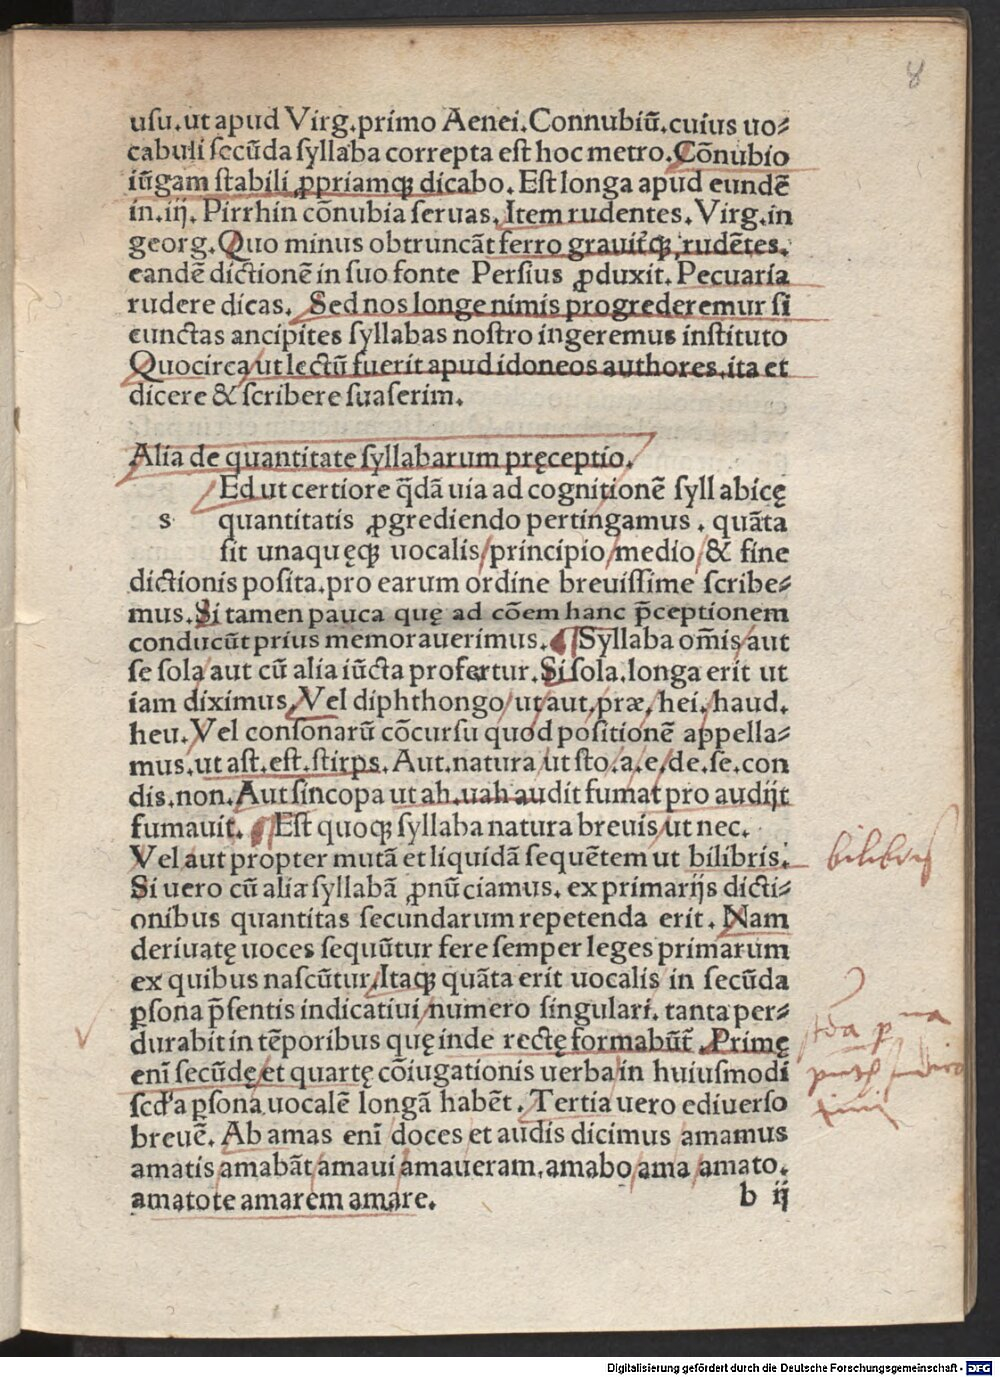 8
uſu.ut apud Virg.primo Aenei.Connubiū.cuius uo⸗
cabuli ſecūda ſyllaba correpta eſt hoc metro.Cōnubio
iūgam ſtabili ꝓpriamqꝫ dicabo.Eſt longa apud eundē
in.iij. Pirrhin cōnubia ſeruas.Item rudentes.Virg.in
georg.Quo minus obtruncāt ferro grauit̄qꝫ rudētes.
eandē dictionē in ſuo fonte Perſius ꝓduxit.Pecuaria
rudere dicas. Sed nos longe nimis progrederemur ſi
cunctas ancipites ſyllabas noſtro ingeremus inſtituto
Quocirca/ut lectū fuerit apud idoneos authores.ita et
dicere & ſcribere ſuaſerim.
Alia de quantitate ſyllabarum pręceptio.
Ed ut certiore q̄dā uia ad cognitionē ſyllabicę
s quantitatis ꝓgrediendo pertingamus. quāta
ſit unaquęqꝫ uocalis/principio/medio/& fine
dictionis poſita.pro earum ordine breuiſſime ſcribe⸗
mus.Si tamen pauca quę ad cōem hanc p̄ceptionem
conducūt prius memorauerimus. ¶Syllaba om̄is/aut
ſe ſola/aut cū alia iūcta profertur.Si ſola.longa erit ut
iam diximus.Vel diphthongo/ut/aut.præ.hei.haud.
heu.Vel conſonarū cōcurſu quod poſitionē appella⸗
mus.ut aſt.eſt.ſtirps.Aut.natura/ut ſto.a.e.de.ſe.con
dis.non.Aut ſincopa ut ah.uah audit fumat pro audijt
fumauit. ¶Eſt quoqꝫ ſyllaba natura breuis/ut nec.
Vel aut propter mutā et liquidā ſequētem ut bilibris.
bilibris
Si uero cū alia ſyllabā ꝓnūciamus. ex primarijs dicti⸗
onibus quantitas ſecundarum repetenda erit. Nam
deriuatę uoces ſequūtur fere ſemper leges primarum
ex quibus naſcūtur.Itaqꝫ quāta erit uocalis in ſecūda
ꝑſona p̄ſentis indicatiui/numero ſingulari. tanta per⸗
durabit in tēporibus quę inde rectę formabūt̄.Primę
enī ſecūdę/et quartę cōiugationis uerba/in huiuſmodi
ſcd'a ꝑſona uocalē longā habēt.Tertia uero ediuerſo
breuē. Ab amas enī doces et audis dicimus amamus
amatis amabāt/amaui/amaueram.amabo/ama/amato.
amatote amarem amare.
b ij
Digitalisierung gefördert durch die Deutsche Forschungsgemeinschaft - DFG